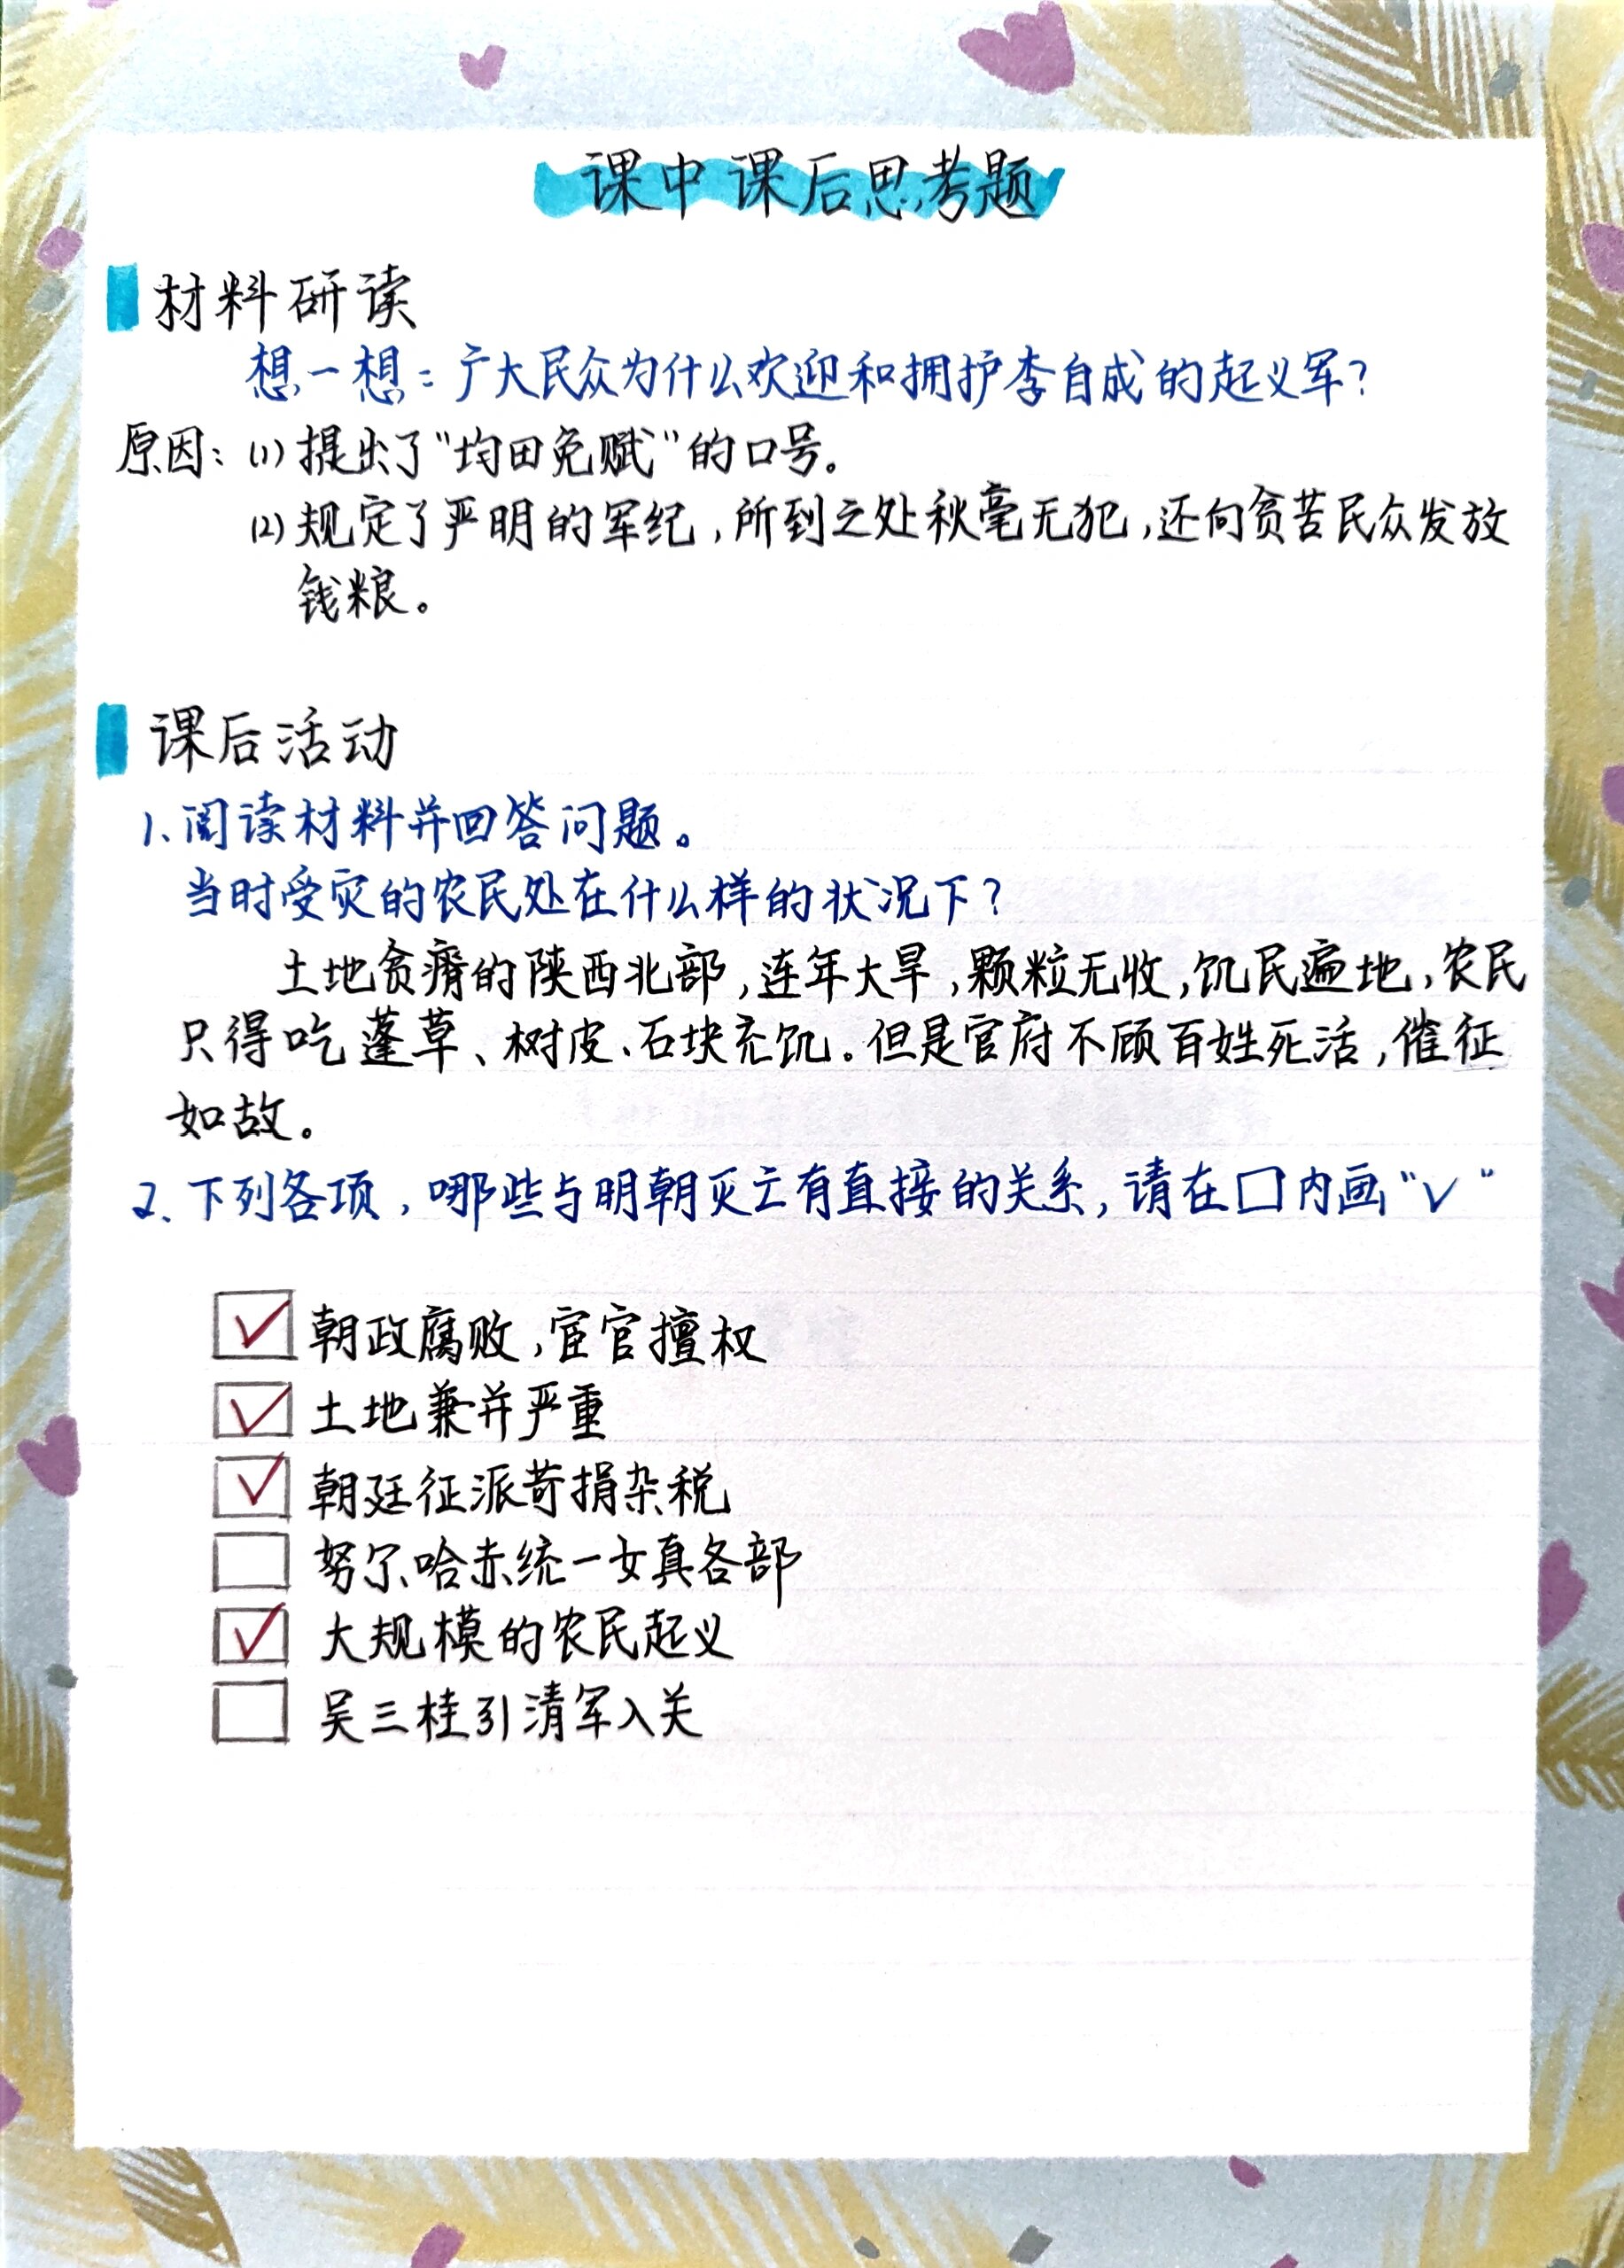 课中课后思考题
材料研读
想一想：广大民众为什么欢迎和拥护李自成的起义军？
原因：(1)提出了“均田免赋”的口号。
(2)规定了严明的军纪，所到之处秋毫无犯，还向贫苦民众发放
钱粮。
课后活动
1、阅读材料并回答问题。
当时受灾的农民处在什么样的状况下？
土地贫瘠的陕西北部，连年大旱，颗粒无收，饥民遍地，农民
只得吃蓬草、树皮、石块充饥。但是官府不顾百姓死活，催征
如故。
2、下列各项，哪些与明朝灭亡有直接的关系，请在口内画“√”
☑朝政腐败，宦官擅权
☑土地兼并严重
☑朝廷征派苛捐杂税
☐努尔哈赤统一女真各部
☑大规模的农民起义
☐吴三桂引清军入关